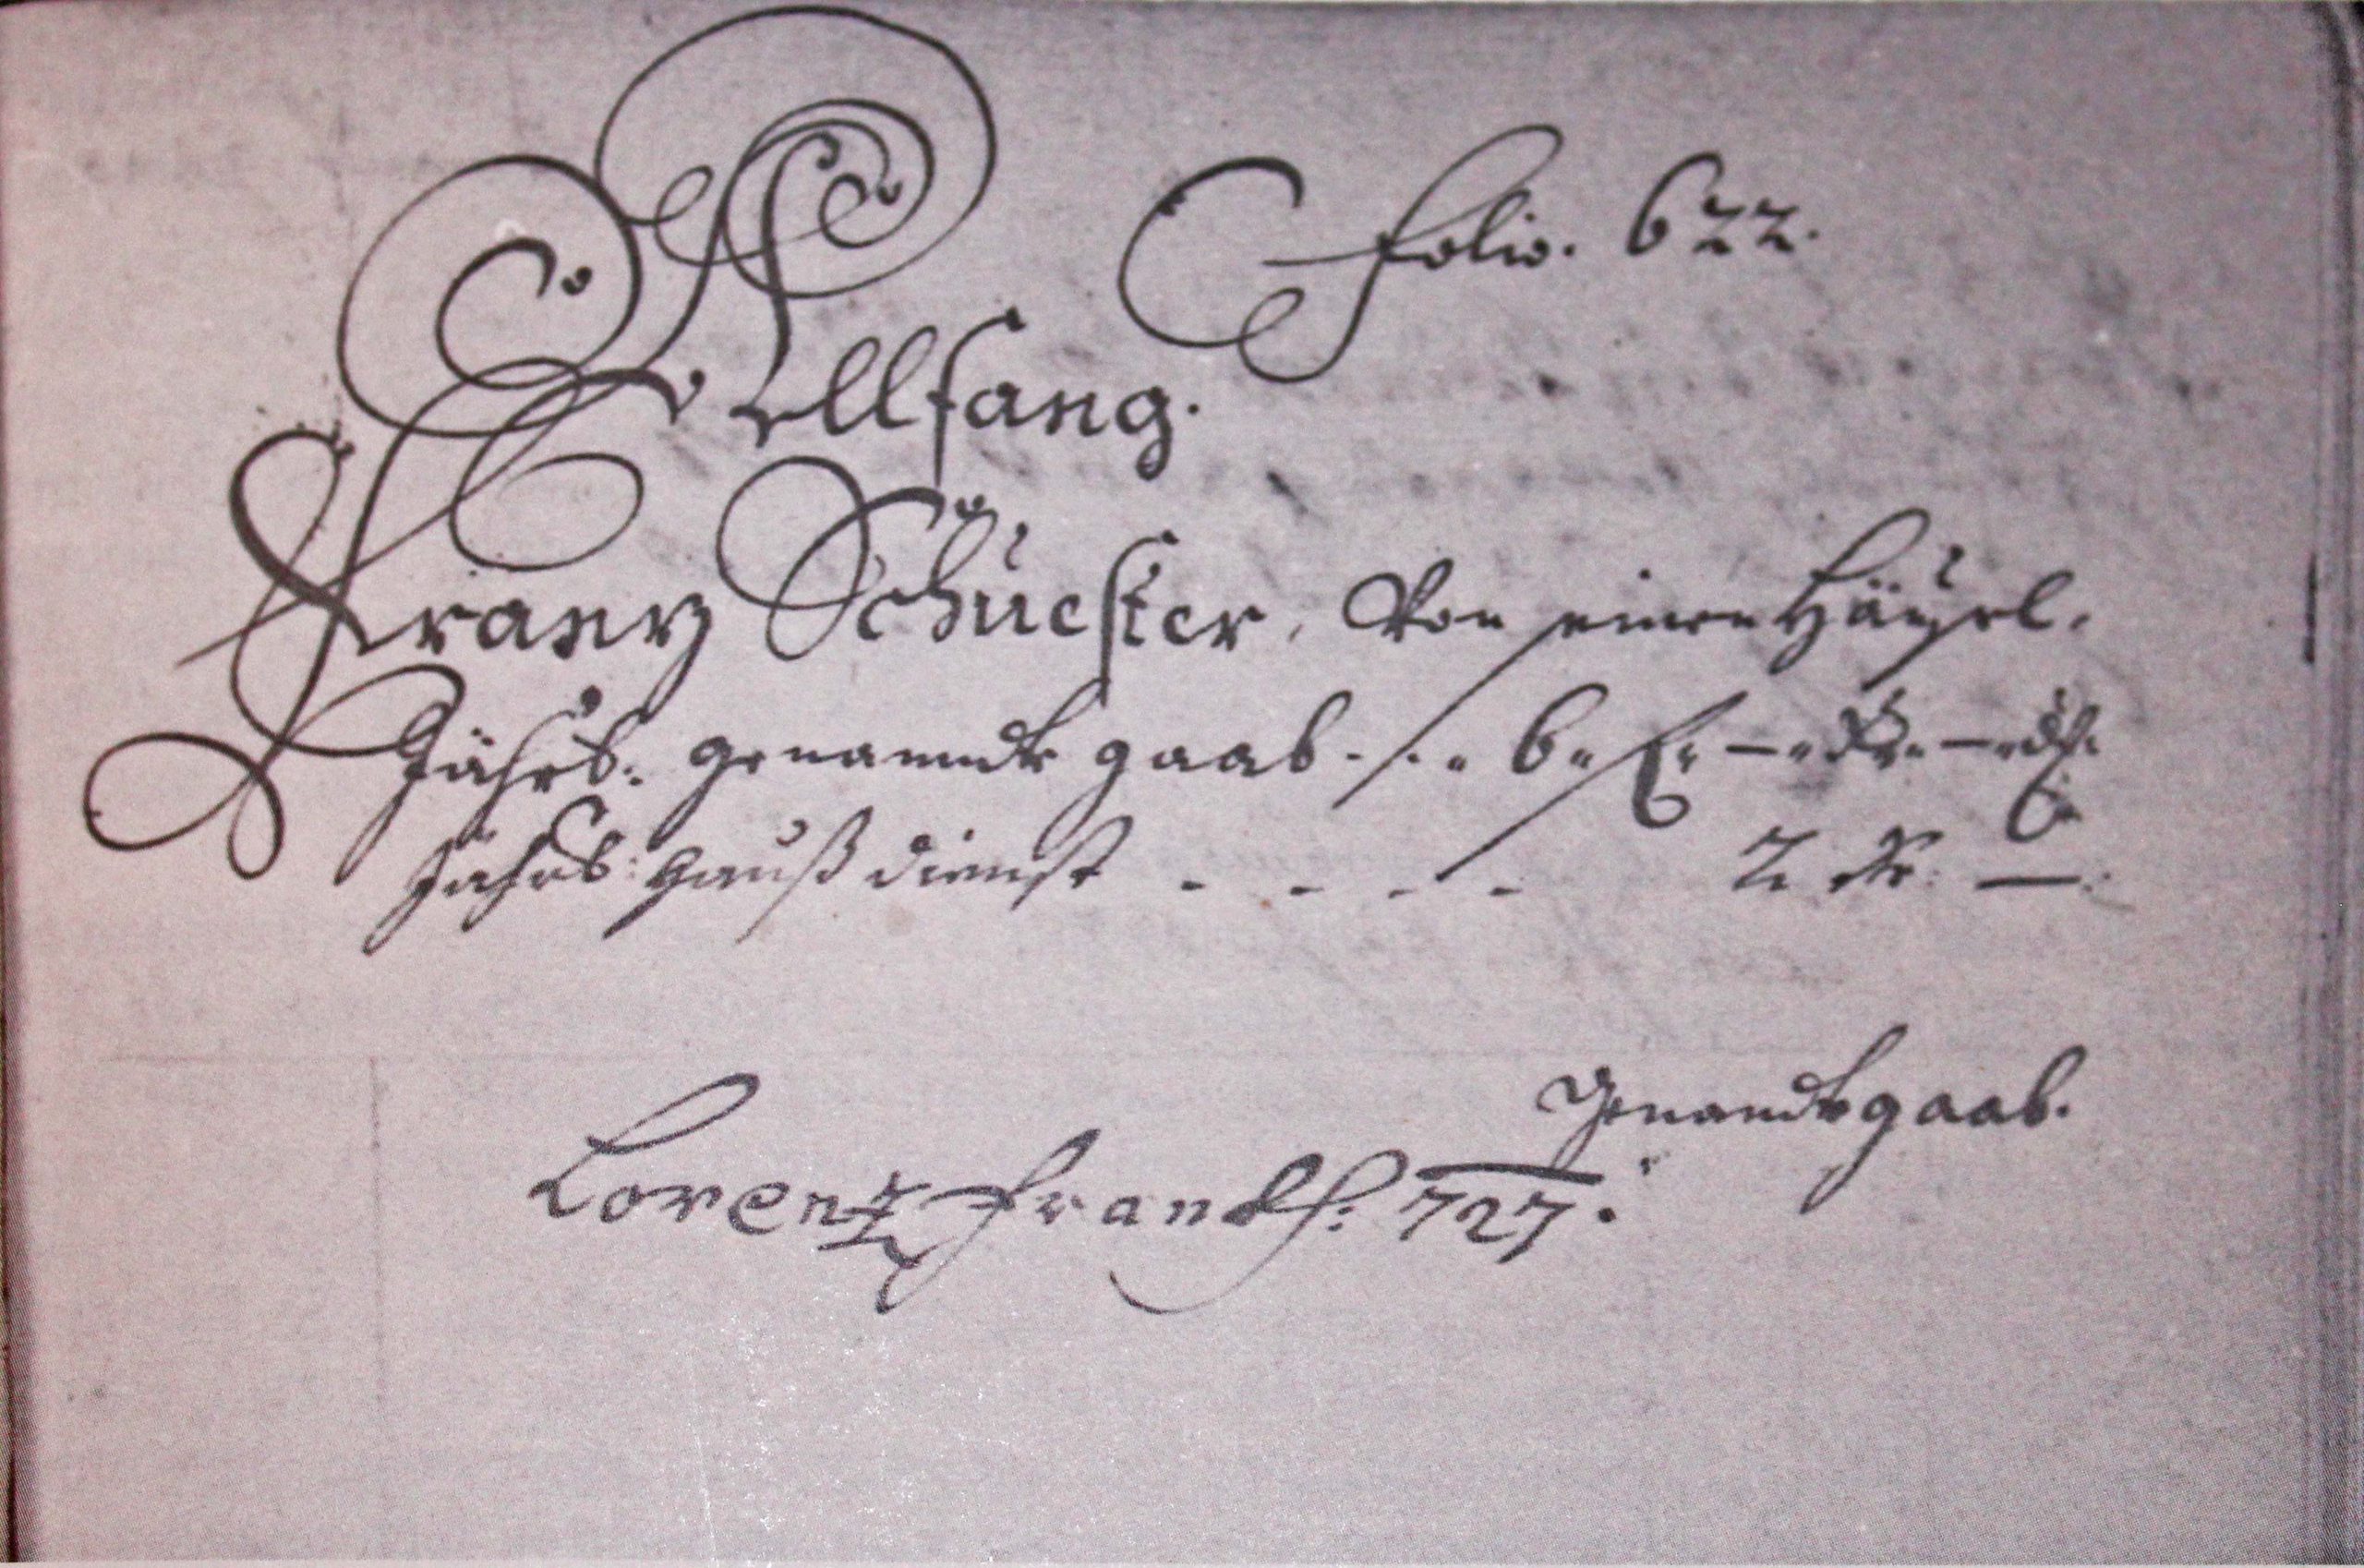 Folio. 622.
Ellfang.
Franz Schuester, Von seinen Häusel.
Jährl: genanndte gaab . . . 6 „ ß — „ — „
Jährl: Hauß dienst - - - - 2 kr: —.
Genandtgaab.
Lorentz Franckh: 727.